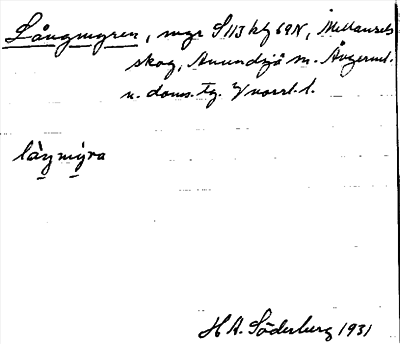 Långmyren, myr S 113 kbf 69N, Mellansels
skog, Anundsjö sn. Ångerml.
n. doms. tg. Y norrl. l.
làŋmy̆ra
H A. Söderberg 1931